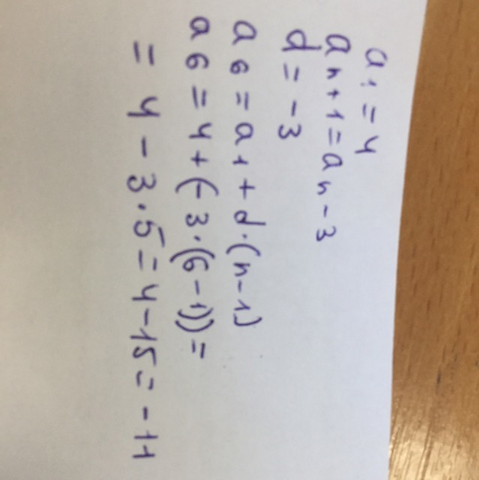 a1 = 4
an+1 = an - 3
d = -3
a6 = a1 + d·(n-1)
a6 = 4 + (-3·(6-1)) =
= 4 - 3·5 = 4 - 15 = -11